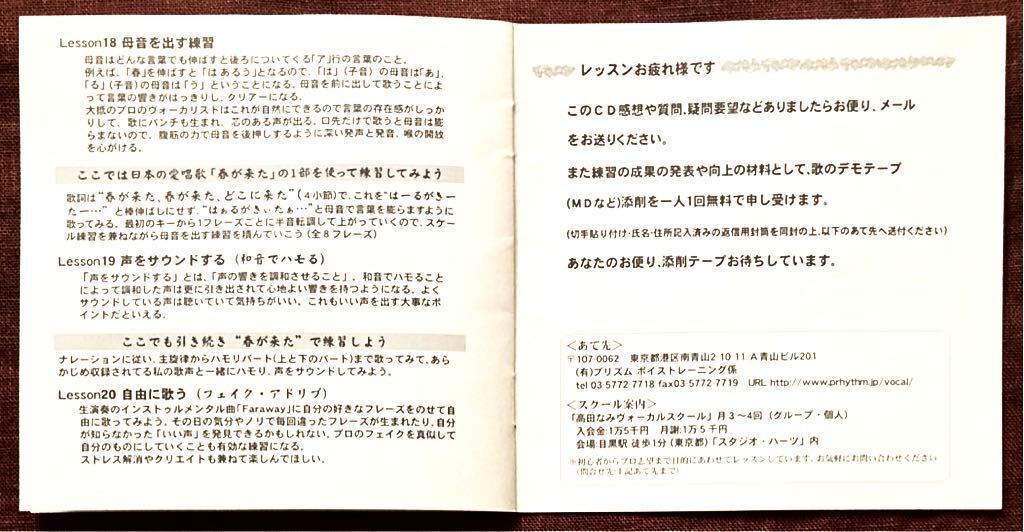 Lesson18 母音を出す練習
母音はどんな言葉でも伸ばすと後ろについてくる「ア」行の言葉のこと。
例えば、「春」を伸ばすと「は あるう」となるので、「は」(子音)の母音は「あ」、
「る」(子音)の母音は「う」ということになる。母音を前に出して歌うことによ
って言葉の響きがはっきりし、クリアーになる。
大抵のプロのヴォーカリストはこれが自然にできるので言葉の存在感がしっか
りして、歌にパンチも生まれ、芯のある声が出る。口先だけで歌うと母音は膨
らまないので、腹筋の力で母音を後押しするように深い発声と発音、喉の開放
を心がける。
ここでは日本の愛唱歌「春が来た」の1部を使って練習してみよう
歌詞は“春が来た、春が来た、どこに来た”(4小節)で、これを“はーるがきー
たー…”と棒伸ばしにせず、“はぁるがきぃたぁ…”と母音で言葉を膨らますように
歌ってみる。最初のキーから1フレーズごとに半音転調して上がっていくので、スケー
ル練習を兼ねながら母音を出す練習を積んでいこう(全8フレーズ)
Lesson19 声をサウンドする(和音でハモる)
「声をサウンドする」とは、「声の響きを調和させること」。和音でハモること
によって調和した声は更に引き出されて心地よい響きを持つようになる。よく
サウンドしている声は聴いていて気持ちがいい。これもいい声を出す大事なポ
イントだといえる。
ここでも引き続き“春が来た”で練習しよう
ナレーションに従い、主旋律からハモリパート(上と下のパート)まで歌ってみて、あら
かじめ収録されてる私の歌声と一緒にハモリ、声をサウンドしてみよう。
Lesson20 自由に歌う(フェイク・アドリブ)
生演奏のインストゥルメンタル曲「Faraway」に自分の好きなフレーズをのせて自
由に歌ってみよう。その日の気分やノリで毎回違ったフレーズが生まれたり、自分
が知らなかった「いい声」を発見できるかもしれない。プロのフェイクを真似して
自分のものにしていくことも有効な練習になる。
ストレス解消やクリエイトも兼ねて楽しんでほしい。
レッスンお疲れ様です
このCD感想や質問、疑問要望などありましたらお便り、メール
をお送りください。
また練習の成果の発表や向上の材料として、歌のデモテープ
(MDなど)添削を一人1回無料で申し受けます。
(切手貼り付け・氏名・住所記入済みの返信用封筒を同封の上、以下のあて先へ送付ください)
あなたのお便り、添削テープお待ちしています。
<あて先>
〒107-0062 東京都港区南青山2 10 11 A青山ビル201
(有)プリズム ボイストレーニング係
tel 03 5772 7718 fax03 5772 7719 URL http://www.prhythm.jp/vocal/
<スクール案内>
「高田なみヴォーカルスクール」月3〜4回(グループ・個人)
入会金:1万5千円 月謝:1万5千円
会場:目黒駅 徒歩1分(東京都)「スタジオ・ハーツ」内
※初心者からプロ志望まで目的にあわせてレッスンしています。お気軽にお問い合わせください
(問合せ先:上記あて先まで)